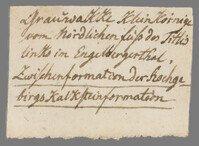 Grauwakke Kleinkörnige
vom Nördlichen fuss des Titlis
links im Engelbergerthal
Zwischenformation der hochge
birgs Kalksteinformation